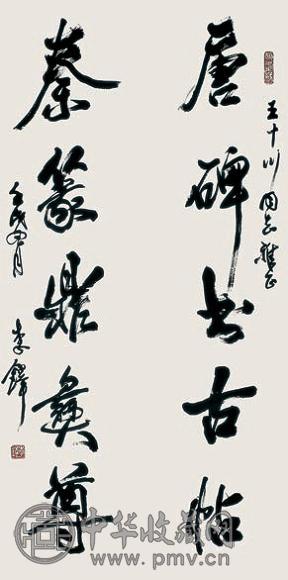 王十川同志雅正
唐碑书古帖
秦篆鼎彝尊
壬戌四月 李鐸
中华收藏网
www.pmv.cn